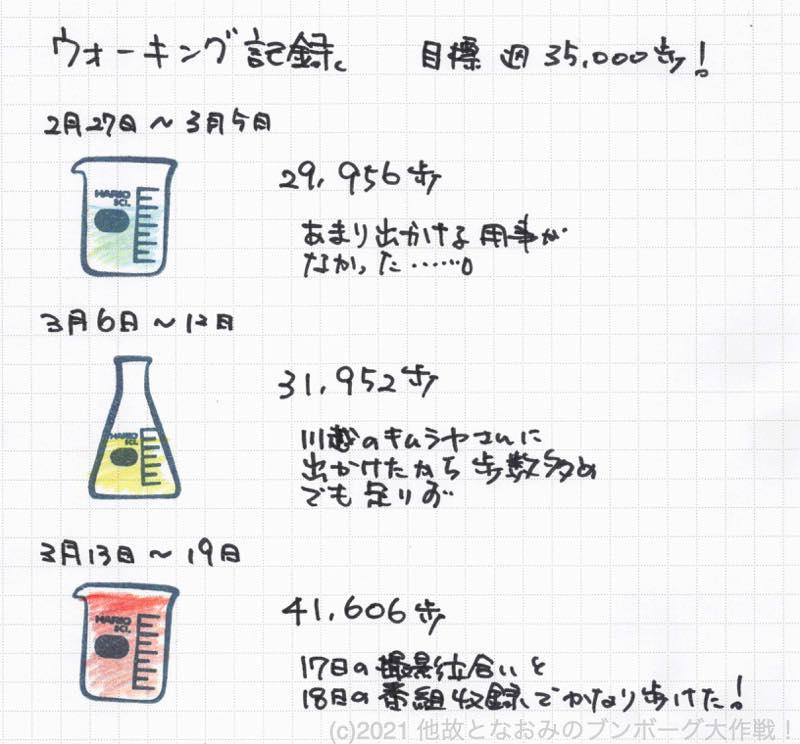 ウォーキング記録。 目標 週 35,000歩!
2月27日～3月5日
HARIO
SCI.
29,956歩
あまり出かける用事が
なかった……。
3月6日～12日
HARIO
SCI.
31,952歩
川越のキムラヤさんに
出かけたから歩数多め
でも足りず
3月13日～19日
HARIO
SCI.
41,606歩
17日の撮影立合いと
18日の番組収録でかなり歩けた!
(c)2021 他故となおみのブンボーグ大作戦！